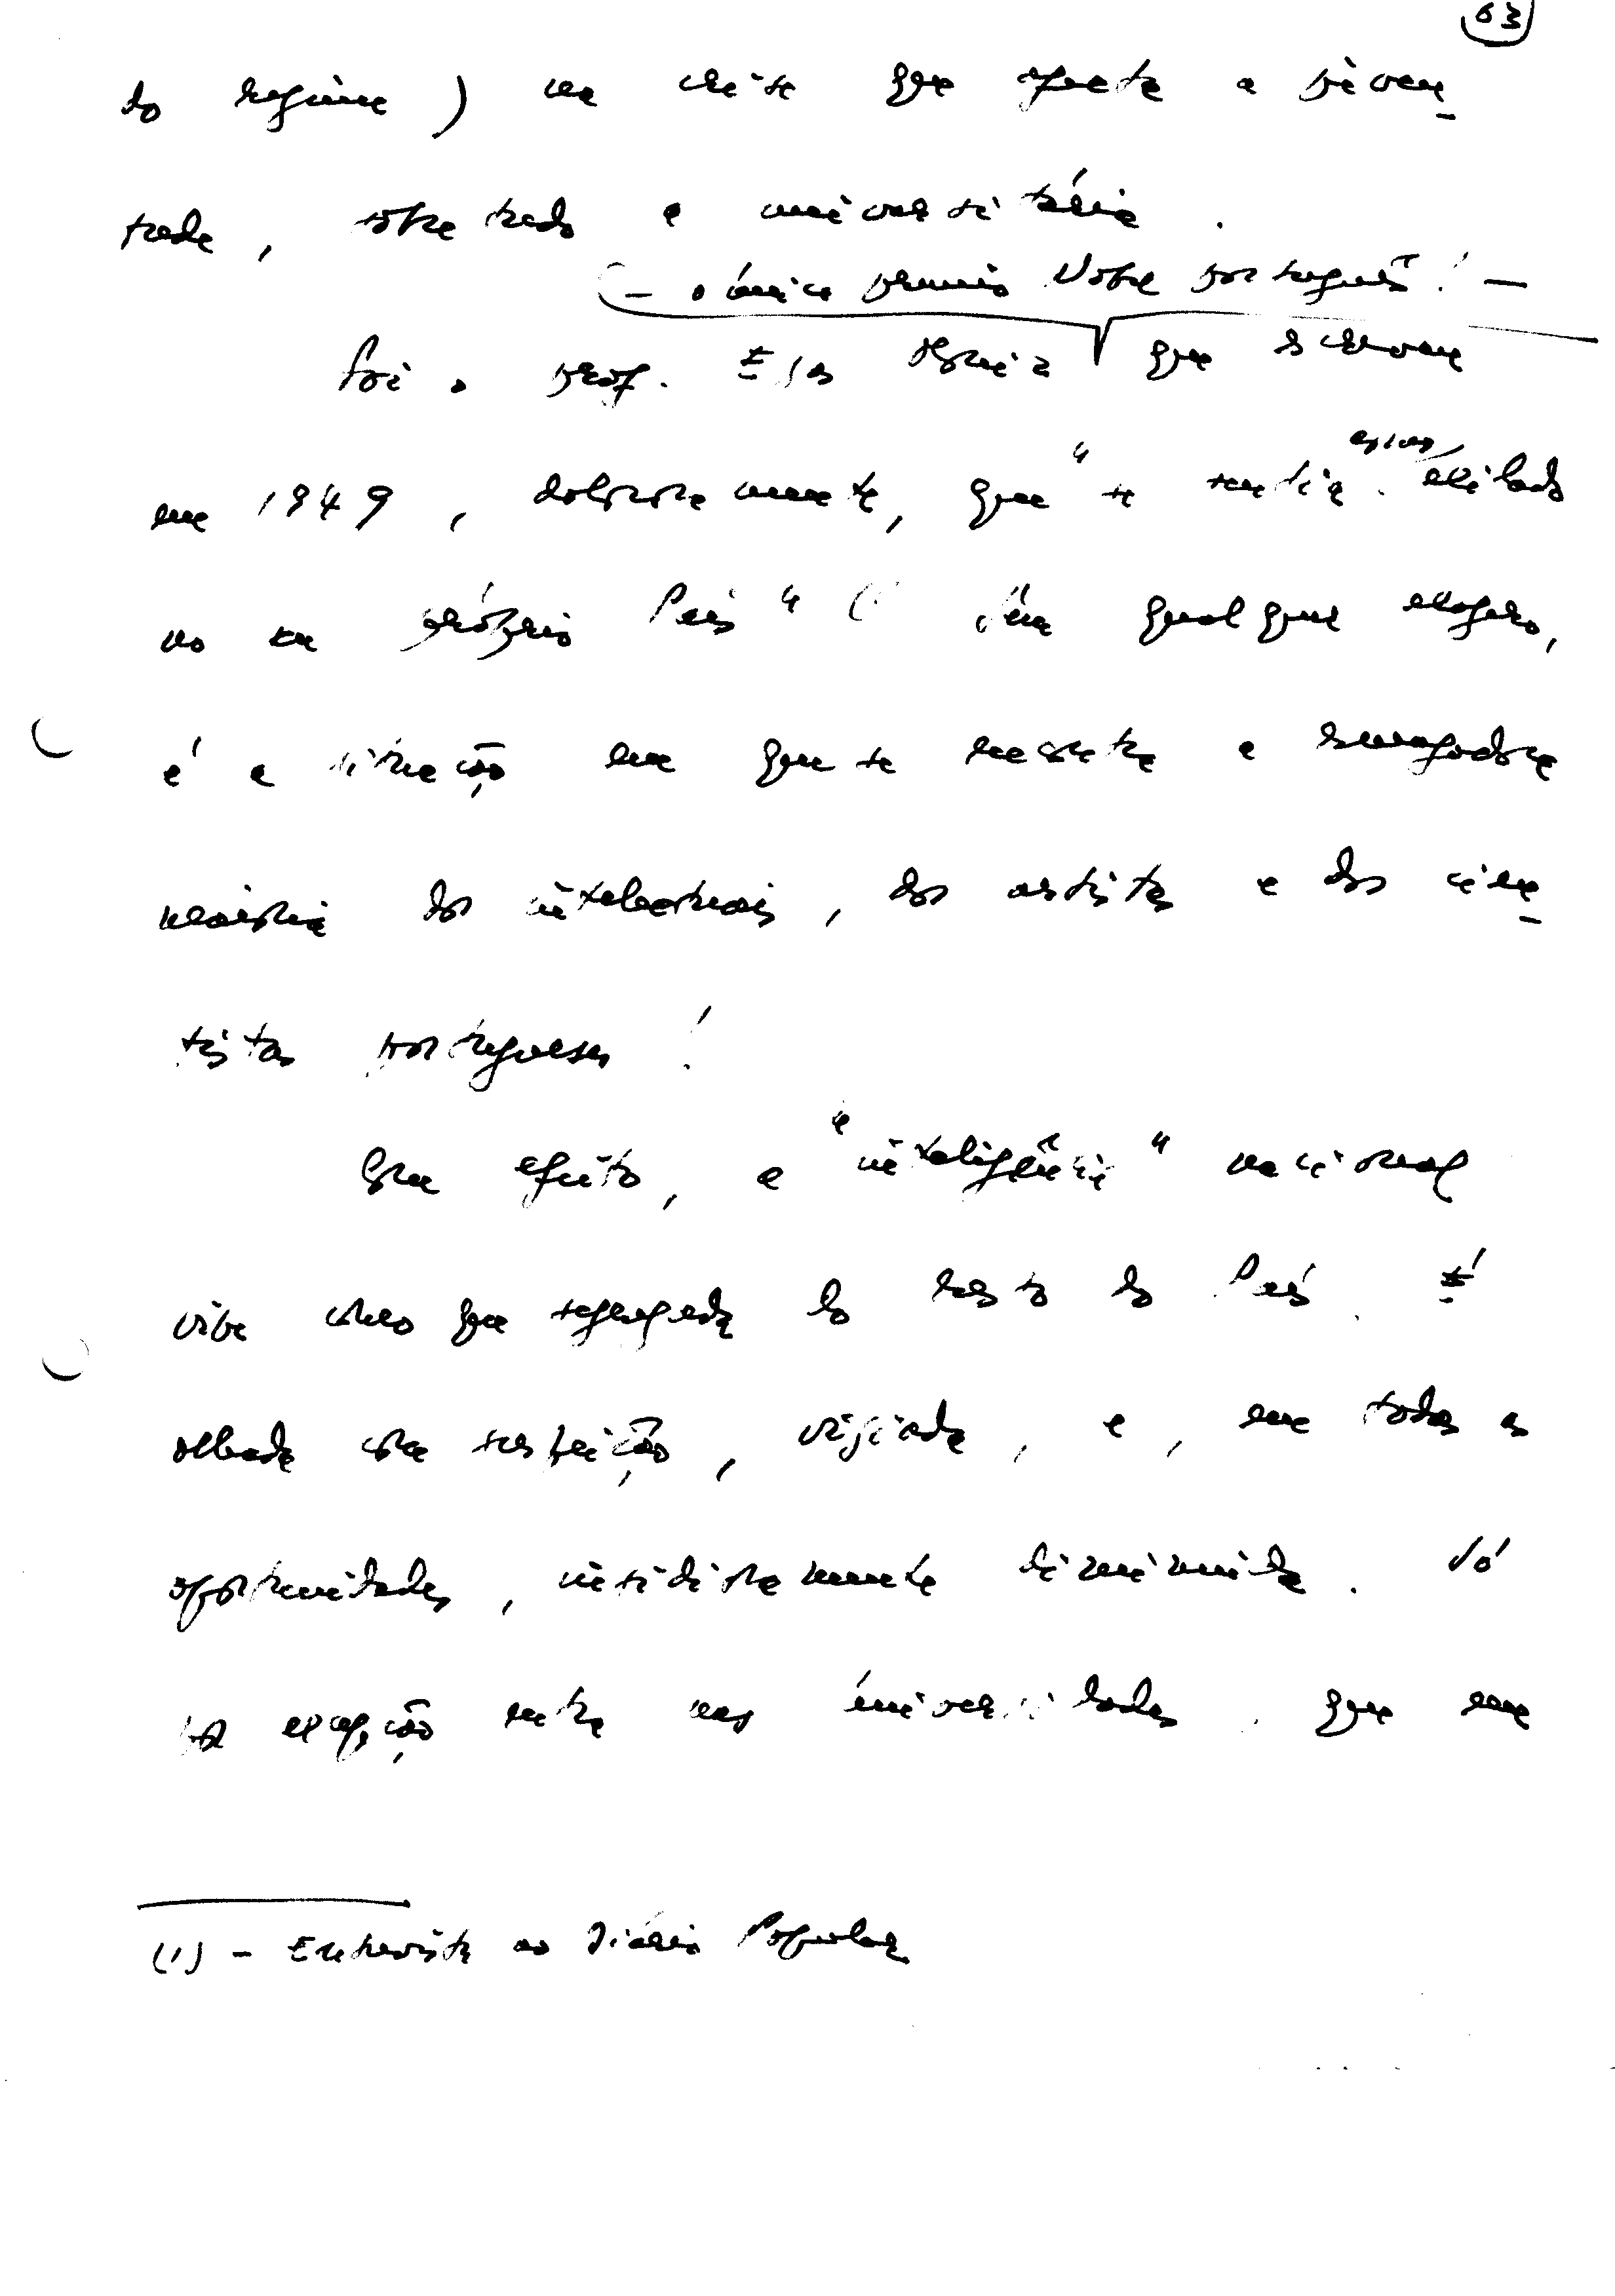 63
do regime) na crise que afecta a juven-
tude, sobretudo a universitária.
— o único prémio Nobel português! —
Foi o prof. Egas Moniz que escreveu
em 1949, dolorosamente, que "se sentia exilado
no seu próprio País" (1 Sem qualquer exagero,
é a situação em que se encontra a esmagadora
maioria dos intelectuais, dos artistas e dos cien-
tistas portugueses!
Com efeito, a "inteligência" nacional
vive como que segregada do resto do País. É
olhada com suspeição, vigiada, e, em todas as
oportunidades, insidiosamente diminuída. Só
por excepção entra nas universidades, que em
(1) - Entrevista ao Diário Popular